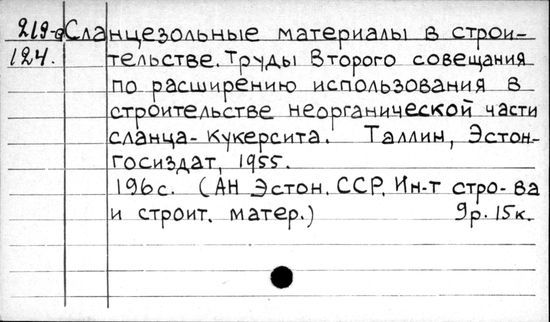 219-а Сланцезольные материалы в строи-
124. тельстве. Труды Второго совещания
по расширению использования в
строительстве неорганической части
сланца-кукерсита. Таллин, Эстон-
госиздат, 1955.
196с. (АН Эстон. ССР. Ин-т стро-ва
и строит. матер.) 9р. 15к.